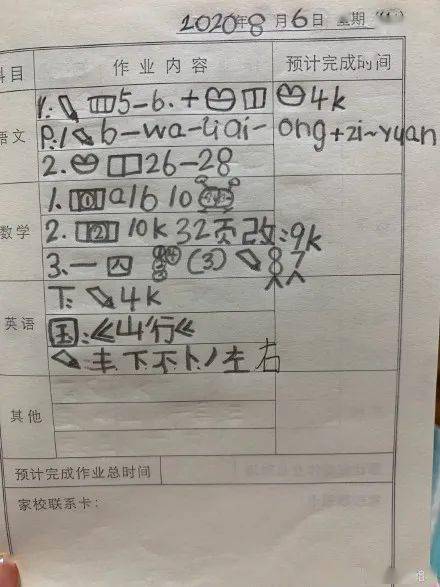 2020年8月6日 星期
科目 作业内容 预计完成时间
语文
1. 5-6.+ 4k
P.1 b-wa-üai-ong+zi~yuan
2. 26-28
数学
1. a1b 10
2. 2 10k 32页 改:9k
3.一 四 (3) 8 7
英语
下: 4k
国:《山行》
丰下不卜丿左右
其他
预计完成作业总时间
家校联系卡: